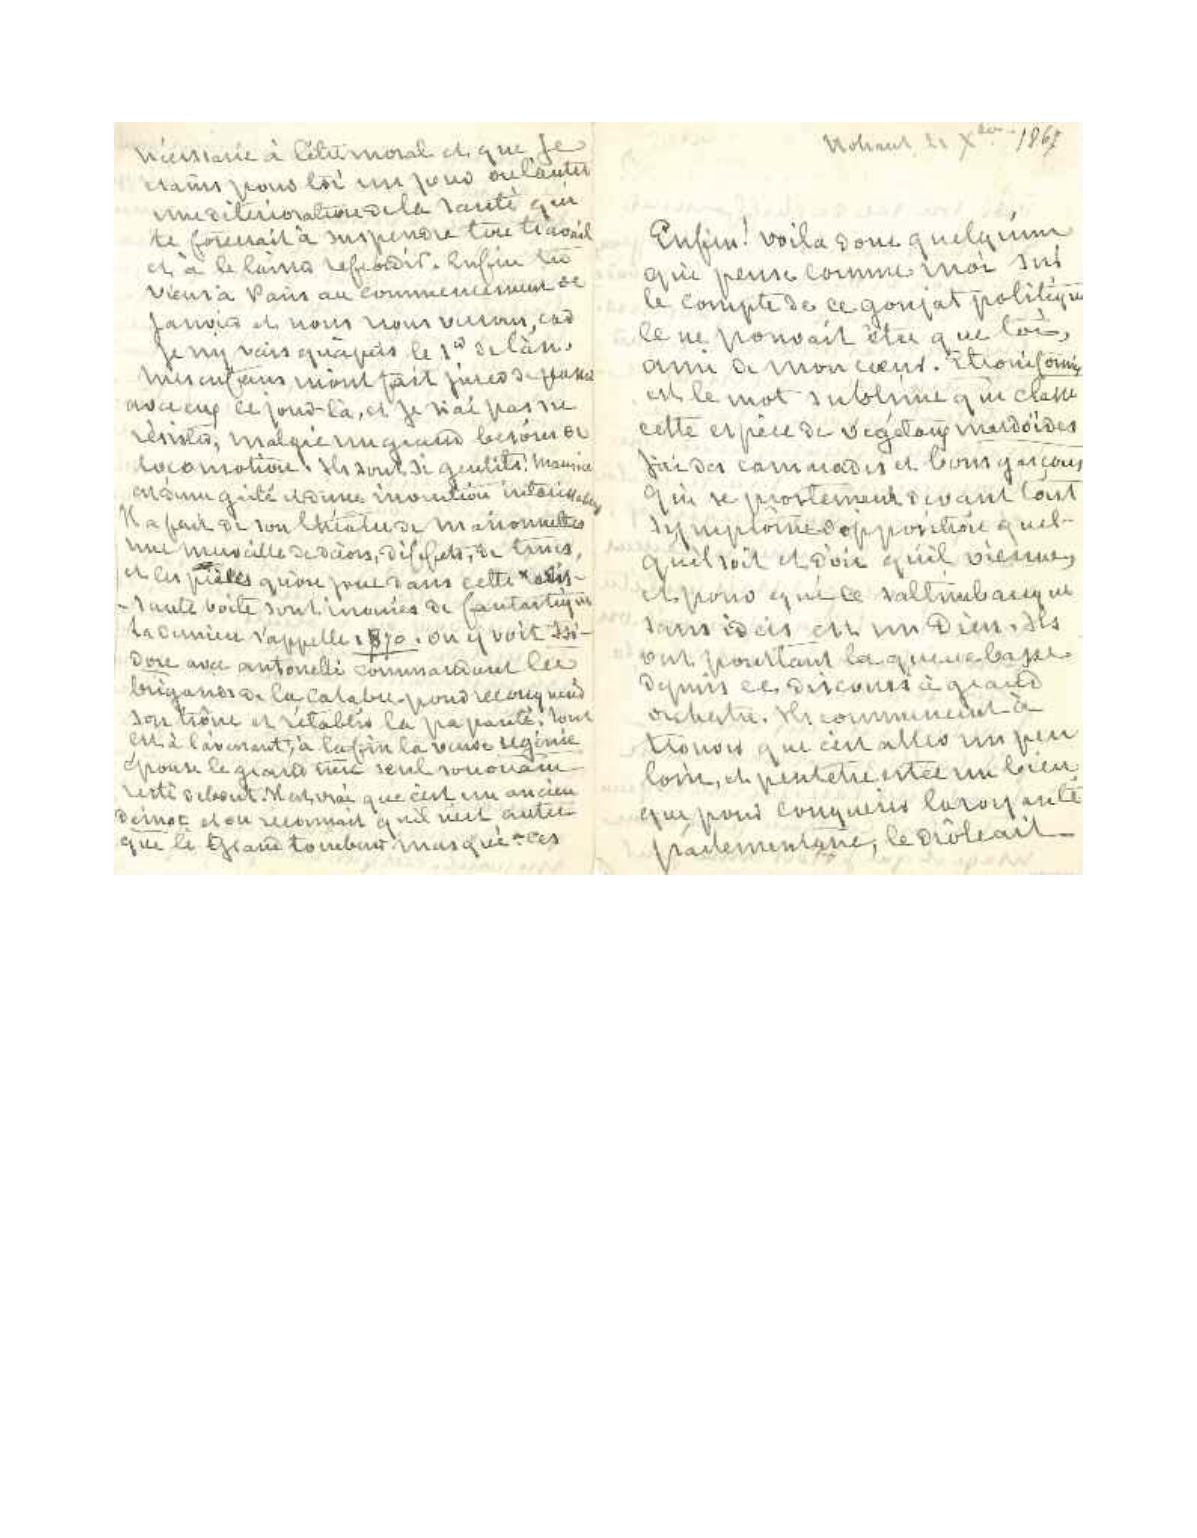 nécessaire à l'être moral et que je
crains pour toi un jour ou l'autre
une détérioration de la santé qui
te forcerait à suspendre ton travail
et à le laisser refroidir. Enfin tu
viens à Paris au commencement de
janvier et nous nous verrons, car
je n'y vais qu'après le 1er de l'an.
Mes enfans m'ont fait jurer de passer
avec eux ce jour-là, et je n'ai pas su
résister, malgré un grand besoin de
locomotion. Ils sont si gentils! Maurice
est d'une gaité et d'une invention intarissables
Il a fait de son théâtre de marionnettes
une merveille de décors, d'effets, de trucs,
et les pièces qu'on joue dans cette ravis-
-sante boite sont inouies de fantastique
La dernière s'appelle 1870. On y voit Isi-
dore avec Antonelli commandant les
brigands de la Calabre pour reconquérir
son trône et rétablir la papauté. Tout
est à l'avenant, à la fin la veuve
épouse le grand turc seul souverain
resté debout. Il est vrai que c'est un ancien
démoc et on reconnait qu'il n'est autre
que le Grand tombeur masqué - ces
Nohant, Xbre 1867
Enfin! voilà donc quelqu'un
qui pense comme moi sur
le compte de ce goujat politique
Ce ne pouvait être que toi,
ami de mon cœur. Etroniforme
est le mot sublime qui classe
cette espèce de végétaux merdoïdes
J'ai des camarades et bons garçons
qui se prosternent devant tout
symptôme d'opposition quel-
qu'il soit et d'où qu'il vienne,
et pour qui ce saltimbanque
sans idées est un Dieu. Ils
ont pourtant la queue basse
depuis ce discours à grand
orchestre. Ils commencent à
trouver que c'est aller un peu
loin, et peut-être est-ce un bien
que pour conquérir la royauté
parlementaire, le drôle ait -